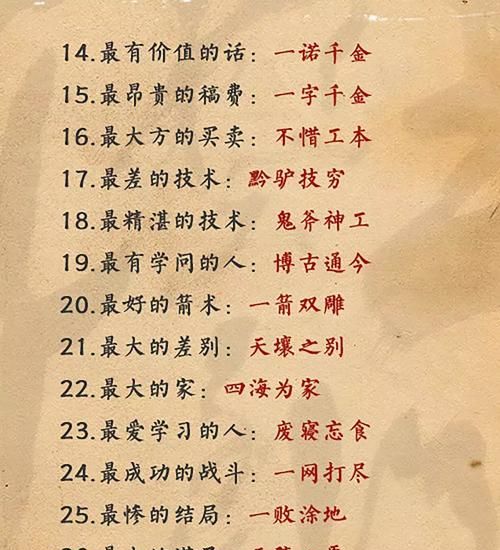 14.最有价值的话：一诺千金
15.最昂贵的稿费：一字千金
16.最大方的买卖：不惜工本
17.最差的技术：黔驴技穷
18.最精湛的技术：鬼斧神工
19.最有学问的人：博古通今
20.最好的箭术：一箭双雕
21.最大的差别：天壤之别
22.最大的家：四海为家
23.最爱学习的人：废寝忘食
24.最成功的战斗：一网打尽
25.最惨的结局：一败涂地